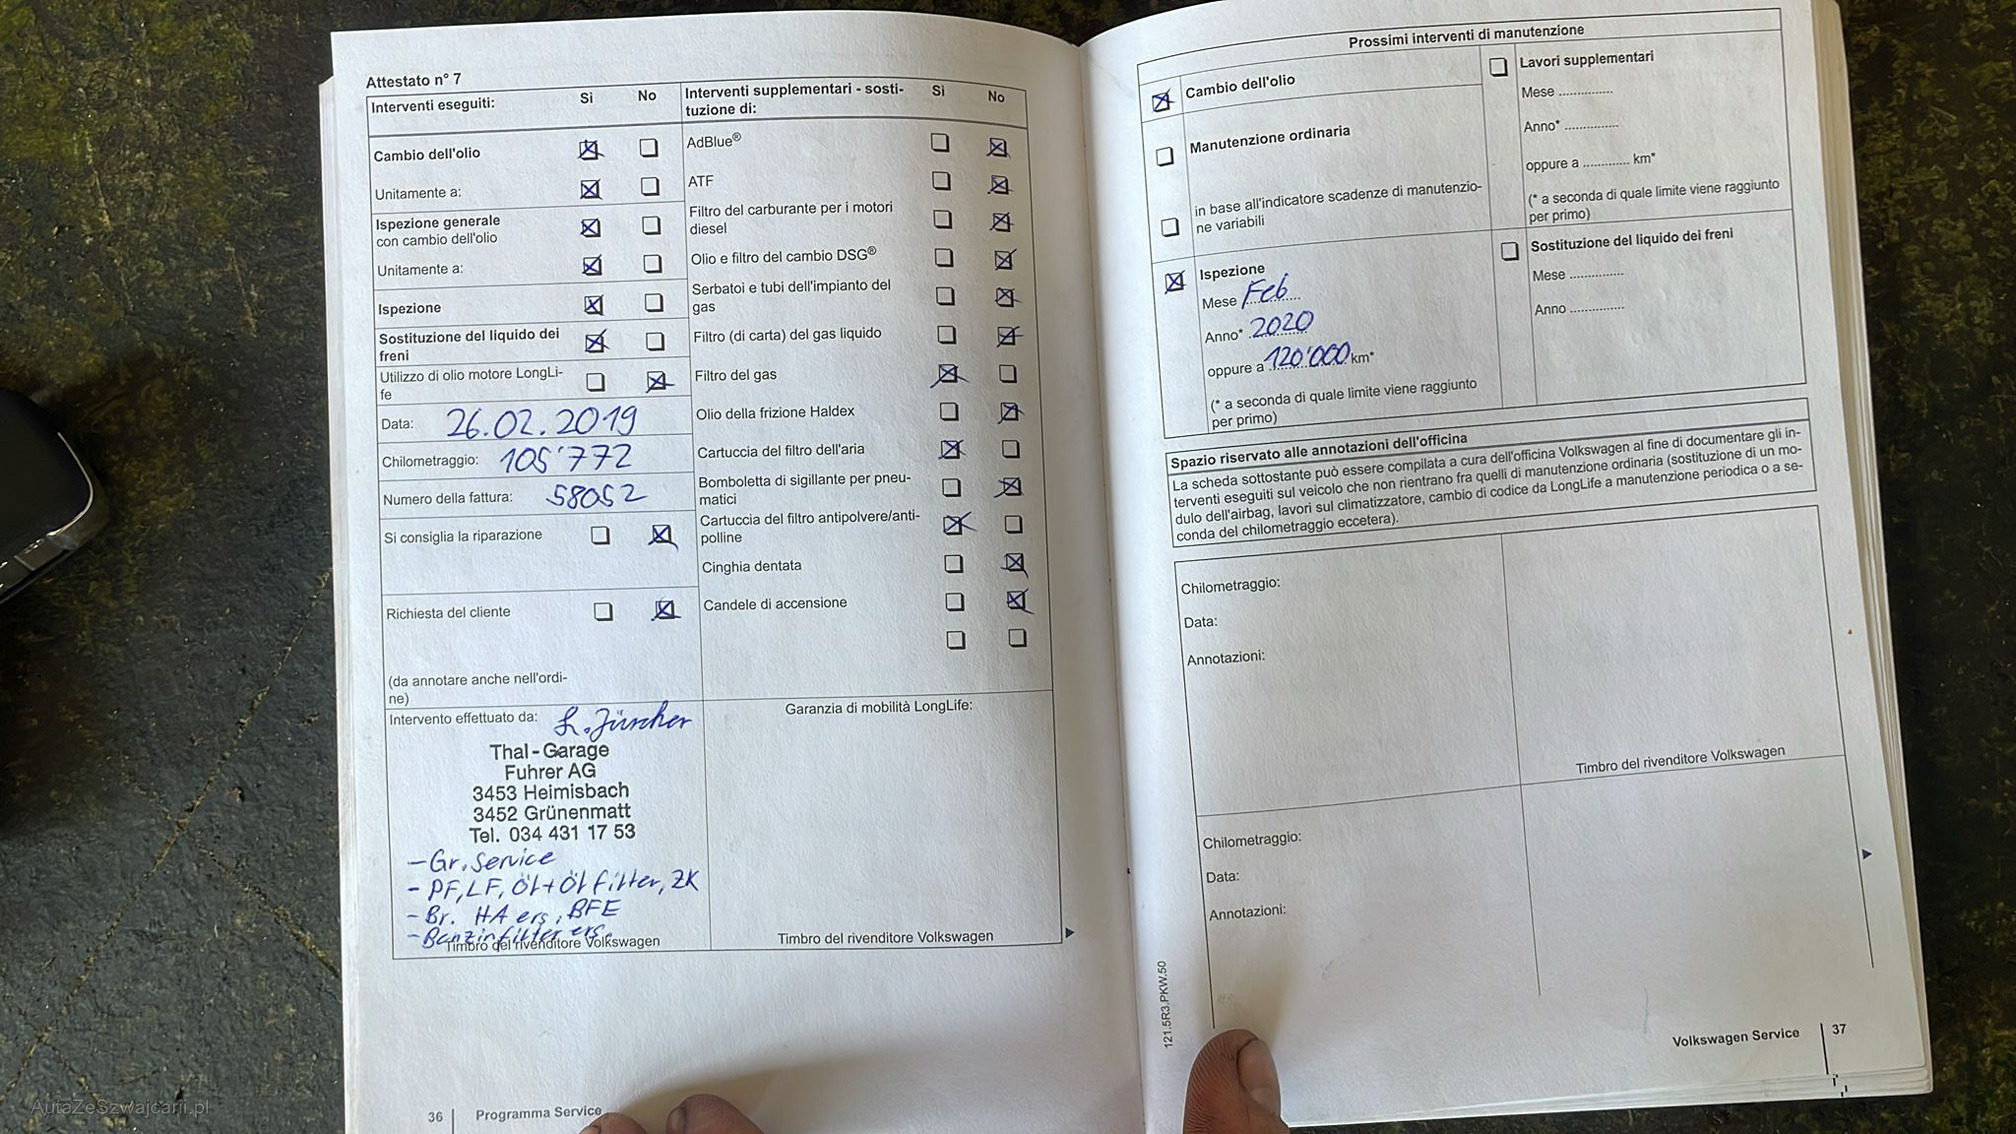 Attestato n° 7
Interventi eseguiti:
Sì
No
Cambio dell'olio
Unitamente a:
Ispezione generale
con cambio dell'olio
Unitamente a:
Ispezione
Sostituzione del liquido dei
freni
Utilizzo di olio motore LongLi-
fe
Data: 26.02.2019
Chilometraggio: 105'772
Numero della fattura: 58052
Si consiglia la riparazione
Richiesta del cliente
(da annotare anche nell'ordi-
ne)
Intervento effettuato da: L. Jürcher
Thal-Garage
Fuhrer AG
3453 Heimisbach
3452 Grünenmatt
Tel. 034 431 17 53
- Gr. Service
- PF, LF, Öl + Öl filter, ZK
- Br. HA ers, BFE
- Benzinfilter ers.
Timbro del rivenditore Volkswagen
Interventi supplementari - sosti-
tuzione di:
Sì
No
AdBlue®
ATF
Filtro del carburante per i motori
diesel
Olio e filtro del cambio DSG®
Serbatoi e tubi dell'impianto del
gas
Filtro (di carta) del gas liquido
Filtro del gas
Olio della frizione Haldex
Cartuccia del filtro dell'aria
Bomboletta di sigillante per pneu-
matici
Cartuccia del filtro antipolvere/anti-
polline
Cinghia dentata
Candele di accensione
Garanzia di mobilità LongLife:
Timbro del rivenditore Volkswagen
36
Programma Service
Prossimi interventi di manutenzione
Cambio dell'olio
Manutenzione ordinaria
in base all'indicatore scadenze di manutenzio-
ne variabili
Ispezione
Mese Feb
Anno* 2020
oppure a 120'000 km*
(* a seconda di quale limite viene raggiunto
per primo)
Lavori supplementari
Mese ..............
Anno* ..............
oppure a ............ km*
(* a seconda di quale limite viene raggiunto
per primo)
Sostituzione del liquido dei freni
Mese ..............
Anno ..............
Spazio riservato alle annotazioni dell'officina
La scheda sottostante può essere compilata a cura dell'officina Volkswagen al fine di documentare gli in-
terventi eseguiti sul veicolo che non rientrano fra quelli di manutenzione ordinaria (sostituzione di un mo-
dulo dell'airbag, lavori sul climatizzatore, cambio di codice da LongLife a manutenzione periodica o a se-
conda del chilometraggio eccetera).
Chilometraggio:
Data:
Annotazioni:
Timbro del rivenditore Volkswagen
Chilometraggio:
Data:
Annotazioni:
121.5R3.PKW.50
Volkswagen Service
37
AutaZeSzwajcarii.pl